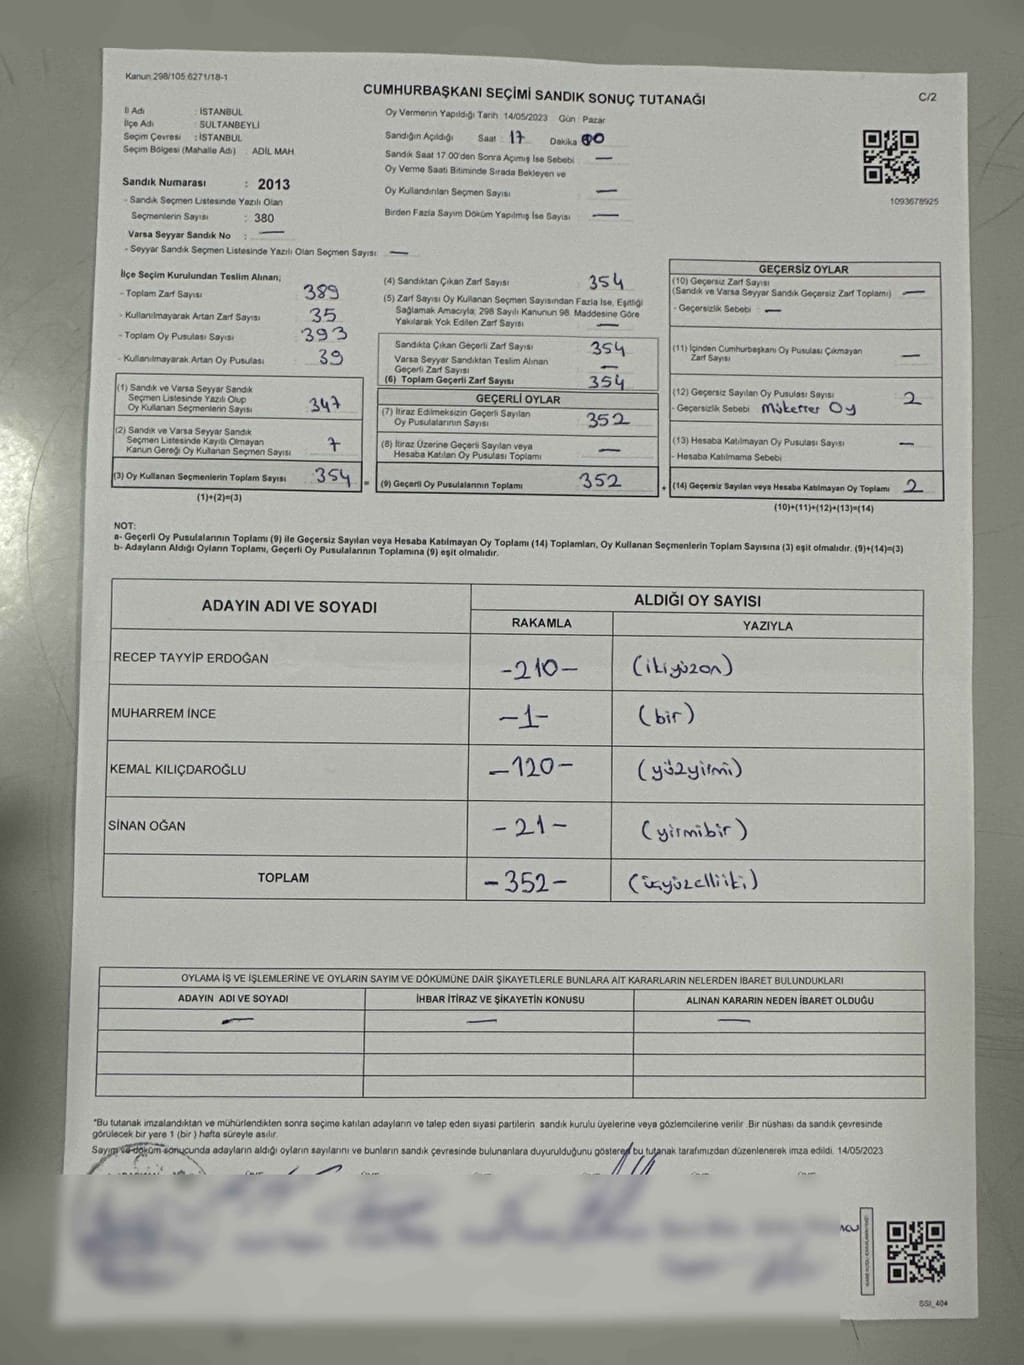 Kanun 298/105 6271/18-1
CUMHURBAŞKANI SEÇİMİ SANDIK SONUÇ TUTANAĞI
C/2
İl Adı : İSTANBUL
İlçe Adı : SULTANBEYLİ
Seçim Çevresi : İSTANBUL
Seçim Bölgesi (Mahalle Adı) : ADİL MAH
Sandık Numarası : 2013
- Sandık Seçmen Listesinde Yazılı Olan
Seçmenlerin Sayısı : 380
Varsa Seyyar Sandık No : —
- Seyyar Sandık Seçmen Listesinde Yazılı Olan Seçmen Sayısı: —
Oy Vermenin Yapıldığı Tarih 14/05/2023 Gün : Pazar
Sandığın Açıldığı Saat : 17 Dakika 00
Sandık Saat 17.00'den Sonra Açımış İse Sebebi —
Oy Verme Saati Bitiminde Sırada Bekleyen ve
Oy Kullandırılan Seçmen Sayısı —
Birden Fazla Sayım Döküm Yapılmış İse Sayısı —
1093678925
İlçe Seçim Kurulundan Teslim Alınan;
- Toplam Zarf Sayısı 389
- Kullanılmayarak Artan Zarf Sayısı 35
- Toplam Oy Pusulası Sayısı 393
- Kullanılmayarak Artan Oy Pusulası 39
(1) Sandık ve Varsa Seyyar Sandık
Seçmen Listesinde Yazılı Olup
Oy Kullanan Seçmenlerin Sayısı 347
(2) Sandık ve Varsa Seyyar Sandık
Seçmen Listesinde Kayıtlı Olmayan
Kanun Gereği Oy Kullanan Seçmen Sayısı 7
(3) Oy Kullanan Seçmenlerin Toplam Sayısı 354 =
(1)+(2)=(3)
(4) Sandıktan Çıkan Zarf Sayısı 354
(5) Zarf Sayısı Oy Kullanan Seçmen Sayısından Fazla İse, Eşitliği
Sağlamak Amacıyla, 298 Sayılı Kanunun 98. Maddesine Göre
Yakılarak Yok Edilen Zarf Sayısı —
Sandıkta Çıkan Geçerli Zarf Sayısı 354
Varsa Seyyar Sandıktan Teslim Alınan
Geçerli Zarf Sayısı —
(6) Toplam Geçerli Zarf Sayısı 354
GEÇERLİ OYLAR
(7) İtiraz Edilmeksizin Geçerli Sayılan
Oy Pusulalarının Sayısı 352
(8) İtiraz Üzerine Geçerli Sayılan veya
Hesaba Katılan Oy Pusulası Toplamı —
(9) Geçerli Oy Pusulalarının Toplamı 352 +
GEÇERSİZ OYLAR
(10) Geçersiz Zarf Sayısı
(Sandık ve Varsa Seyyar Sandık Geçersiz Zarf Toplamı) —
- Geçersizlik Sebebi : —
(11) İçinden Cumhurbaşkanı Oy Pusulası Çıkmayan
Zarf Sayısı —
(12) Geçersiz Sayılan Oy Pusulası Sayısı 2
- Geçersizlik Sebebi Mükerrer Oy
(13) Hesaba Katılmayan Oy Pusulası Sayısı —
- Hesaba Katılmama Sebebi
(14) Geçersiz Sayılan veya Hesaba Katılmayan Oy Toplamı 2
(10)+(11)+(12)+(13)=(14)
NOT:
a- Geçerli Oy Pusulalarının Toplamı (9) ile Geçersiz Sayılan veya Hesaba Katılmayan Oy Toplamı (14) Toplamları, Oy Kullanan Seçmenlerin Toplam Sayısına (3) eşit olmalıdır. (9)+(14)=(3)
b- Adayların Aldığı Oyların Toplamı, Geçerli Oy Pusulalarının Toplamına (9) eşit olmalıdır.
ADAYIN ADI VE SOYADI ALDIĞI OY SAYISI
RAKAMLA YAZIYLA
RECEP TAYYİP ERDOĞAN -210- (ikiyüzon)
MUHARREM İNCE -1- (bir)
KEMAL KILIÇDAROĞLU -120- (yüzyirmi)
SİNAN OĞAN -21- (yirmibir)
TOPLAM -352- (üçyüzelliiki)
OYLAMA İŞ VE İŞLEMLERİNE VE OYLARIN SAYIM VE DÖKÜMÜNE DAİR ŞİKAYETLERLE BUNLARA AİT KARARLARIN NELERDEN İBARET BULUNDUKLARI
ADAYIN ADI VE SOYADI İHBAR İTİRAZ VE ŞİKAYETİN KONUSU ALINAN KARARIN NEDEN İBARET OLDUĞU
— — —
*Bu tutanak imzalandıktan ve mühürlendikten sonra seçime katılan adayların ve talep eden siyasi partilerin sandık kurulu üyelerine veya gözlemcilerine verilir .Bir nüshası da sandık çevresinde
görülecek bir yere 1 (bir ) hafta süreyle asılır.
Sayım ve döküm sonucunda adayların aldığı oyların sayılarını ve bunların sandık çevresinde bulunanlara duyurulduğunu gösteren bu tutanak tarafımızdan düzenlenerek imza edildi. 14/05/2023
SSI_404